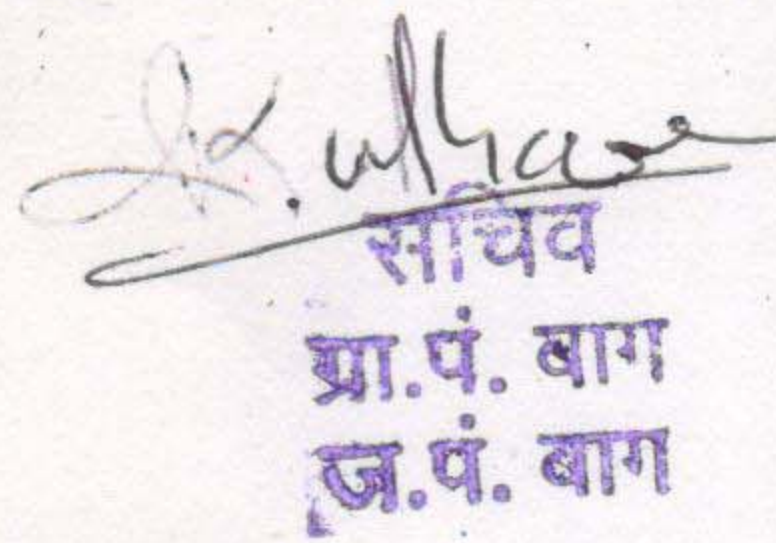 सचिव
ग्रा.पं. बाग
ज.पं. बाग